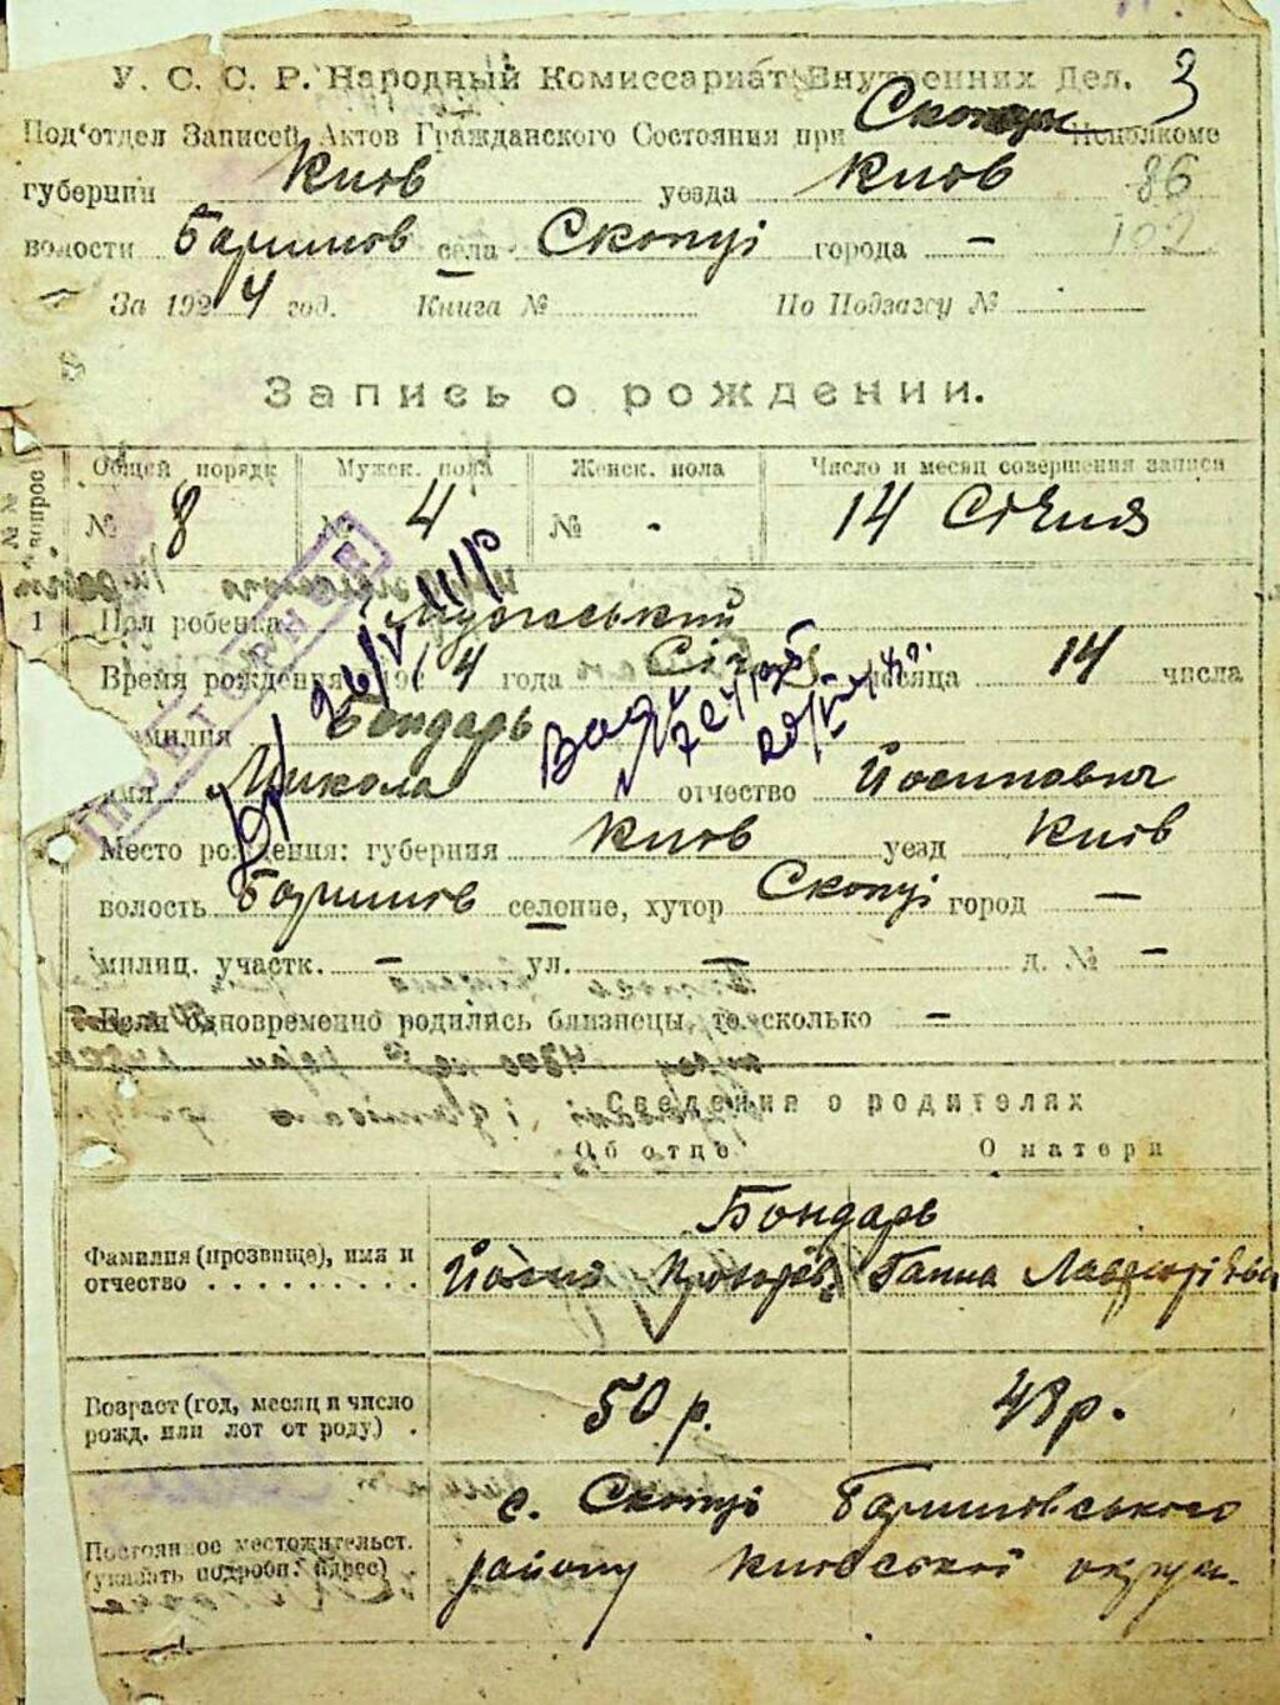 У. С. С. Р. Народный Комиссариат Внутренних Дел. 3
Под'отдел Записей Актов Гражданского Состояния при Исполкоме
губернии Київ уезда Київ 86
волости Баришів села Скопці города — 102
За 1924 год. Книга № По Подзагсу №
Запись о рождении.
№№ вопрос
Общей порядк Мужск. пола Женск. пола Число и месяц совершения записи
№ 8 № 4 № - 14 Січня
1 Пол ребенка Мужеський
Время рождения 192 4 года Січня месяца 14 числа
амилия Бондарь
имя Микола отчество Йосипович
Место рождения: губерния Київ уезд Київ
волость Баришів селение, хутор Скопці город —
милиц. участк. — ул. — д. № —
Если одновременно родились близнецы, то сколько —
Сведения о родителях
Об отце О матери
Бондарь
Фамилия (прозвище), имя и отчество . . . . . . . . . Йосип Ганна
Возраст (год, месяц и число рожд. или лет от роду) . 50 р. 43 р.
Постоянное местожительст. (указать подробн. адрес)
с. Скопці Баришівського
району Київської округи.
ПОВТОРНЕ